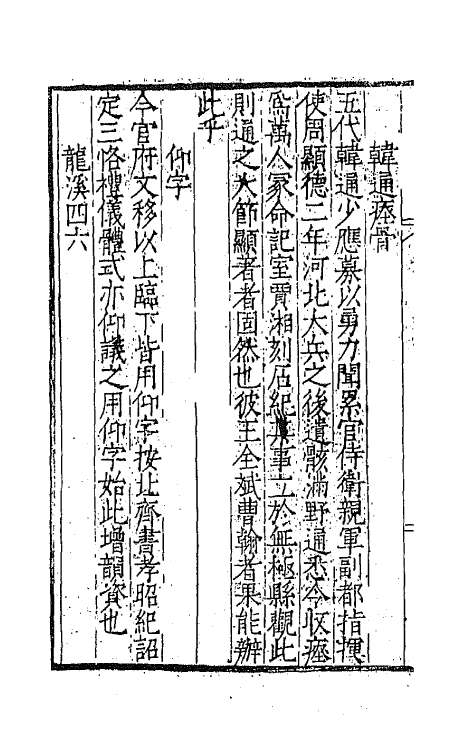 韓通瘞骨
五代韓通少應募以勇力聞累官侍衛親軍副都指揮
使周顯德二年河北大兵之後遺骸滿野通悉令收瘞
為萬人冢命記室賈湘刻石紀其事立於無極縣觀此
則通之大節顯著者固然也彼王全斌曹翰者果能辦
此乎
仰字
今官府文移以上臨下皆用仰字按北齊書孝昭紀詔
定三恪禮儀體式亦仰議之用仰字始此增韻資也
龍溪四六